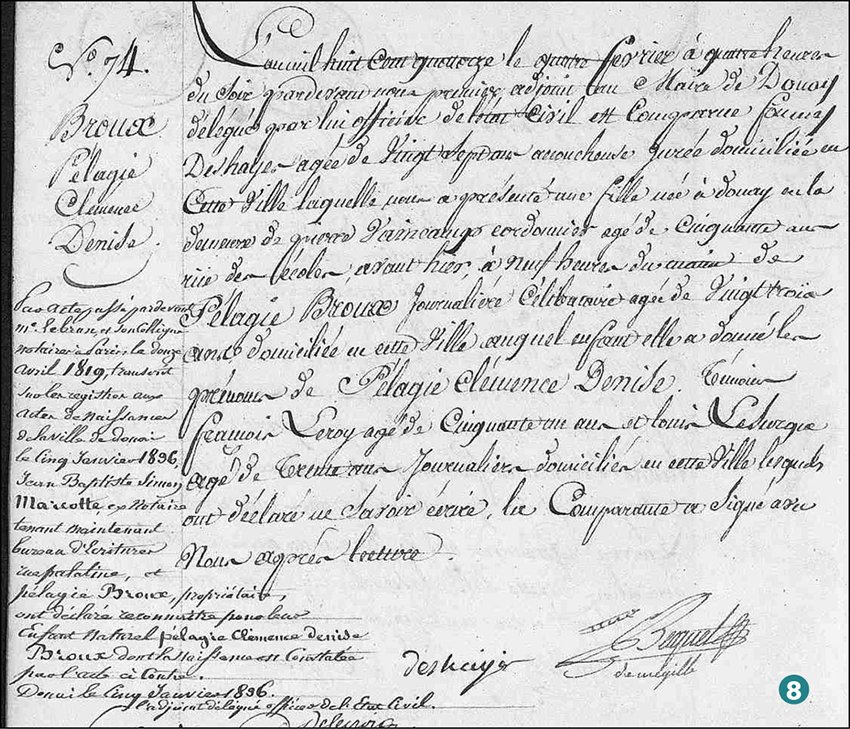 N.° 74.
Broux
Pélagie
Clemence
Denise.
L'an mil huit cent quatorze le quatre fevrier à quatre heures
du soir pardevant nous premier adjoint au Maire de Douay
délégué par lui officier de l'état Civil est Comparue
Deshayes agée de Vingt Sept ans accoucheuse Jurée domiciliée en
Cette Ville laquelle nous a présenté une fille née à douay en la
demeure de pierre Vaincamp cordonnier agé de Cinquante ans
rüe des écoles, avant hier, à neuf heures du matin de
Pélagie Broux Journalière Célibataire agée de Vingt trois
ans domiciliée en cette Ville auquel enfant elle a donné les
prénoms de Pélagie Clémence Denise. Témoins
françois Leroy agé de Cinquante un ans et louis Lesurque
agé de Trente ans Journaliers domiciliés en cette Ville lesquels
ont déclaré ne Savoir écrire, la Comparante a Signé avec
Nous après lecture
Par acte passé pardevant
M.e Lebrun, et Son Collègue
notaires à Paris, le douze
avril 1819, transcrit
Sur les registres aux
actes de naissance
de la ville de douai
le Cinq Janvier 1836,
Jean Baptiste Simon
Marcotte ex Notaire
tenant maintenant
bureau d'Ecritures
rue palatine, et
pélagie Broux, propriétaire,
ont déclaré reconnaitre pour leur
Enfant Naturel pélagie Clémence denise
Broux dont la Naissance est Constatée
par l'acte ci Contre.
Douai le Cinq Janvier 1836.
l'adjoint délégué officier de l'Etat Civil.
deshayes
8